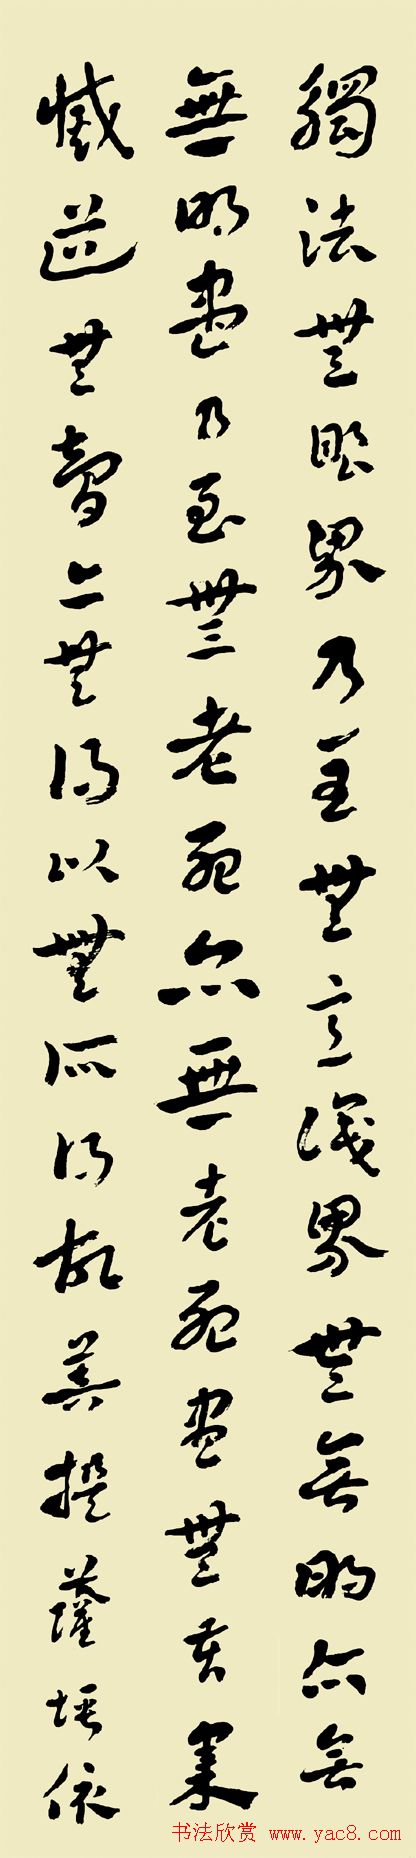 觸法無眼界乃至無意識界無無明亦無
無明盡乃至無老死亦無老死盡無苦集
滅道無智亦無得以無所得故菩提薩埵依
书法欣赏 www.yac8.com